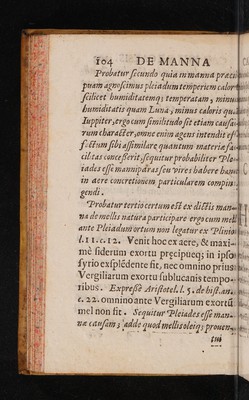 104 DE MANNA
Probatur secundo quia in manna præci
puam agnoscimus pleiadum temperiem calor
scilicet humiditatemq; temperatam, minus
humiditatis quam Luna, minus caloris qua
Iuppiter, ergo cum similitudo sit etiam causa-
rum character, omne enim agens intendit ef-
fectum sibi assimilare quantum materiæ fa-
cilitas concesserit, sequitur probabiliter Ple-
iades esse manniparas seu vires habere han
in aere concretionem particularem compin
gendi.
Probatur tertio certum est ex dictis man-
na de mellis natura participare ergo cum mel
ante Pleiadum ortum non legatur ex Plinio
l. 11. c. 12. Venit hoc ex aere, & maxi-
mè siderum exortu præcipueq; in ipso
syrio explēdente fit, nec omnino prius
Vergiliarum exortu sublucanis tempo-
ribus. Expressè Aristotel. l. 5. de hist. an.
c. 22. omnino ante Vergiliarum exortū
mel non fit. Sequitur Pleiades esse man-
næ causam; adde quod mellis oleiq; prouen-